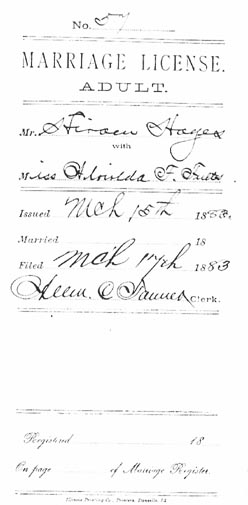 No. 57
MARRIAGE LICENSE.
ADULT.
Mr. Hiram Hayes
with
Miss F.
Issued Mch 15th 1883.
Married 18
Filed Mch 17th 1883
Clerk.
Registered 18
On page of Marriage Register.
Illinois Printing Co., Printers, Danville, Ill.